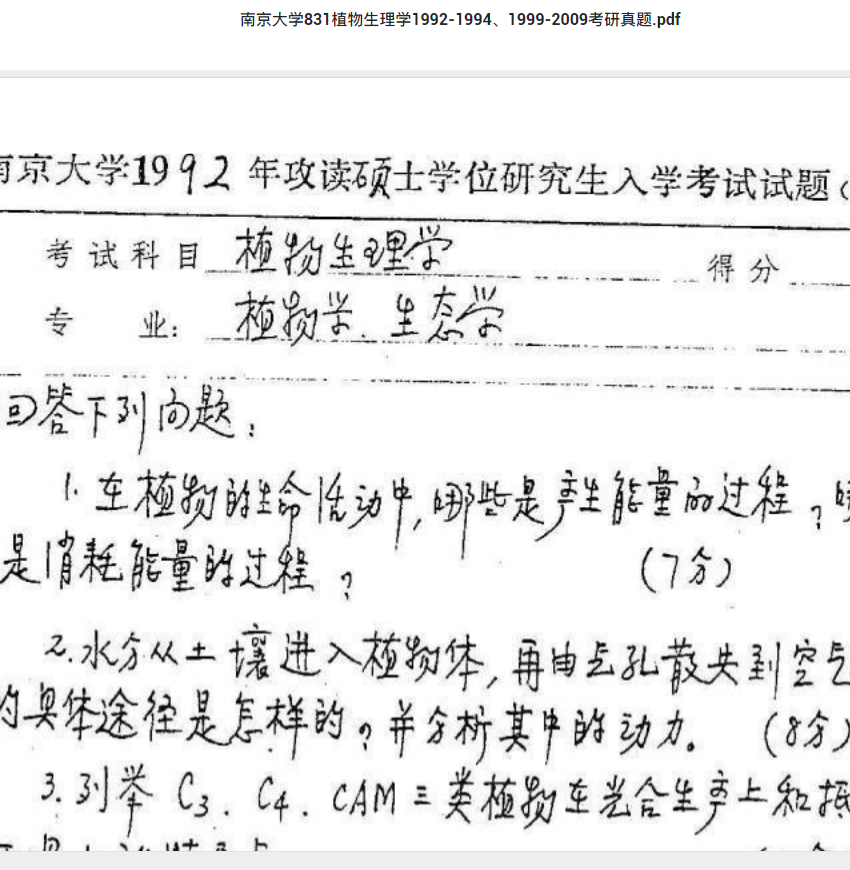 南京大学831植物生理学1992-1994、1999-2009考研真题.pdf
南京大学1992年攻读硕士学位研究生入学考试试题(
考试科目 植物生理学 得分
专 业: 植物学、生态学
回答下列问题:
1. 在植物的生命活动中,哪些是产生能量的过程?哪
是消耗能量的过程? (7分)
2. 水分从土壤进入植物体,再由气孔散失到空气
的具体途径是怎样的?并分析其中的动力。 (8分)
3. 列举 C3、C4、CAM三类植物在光合生产上和抵